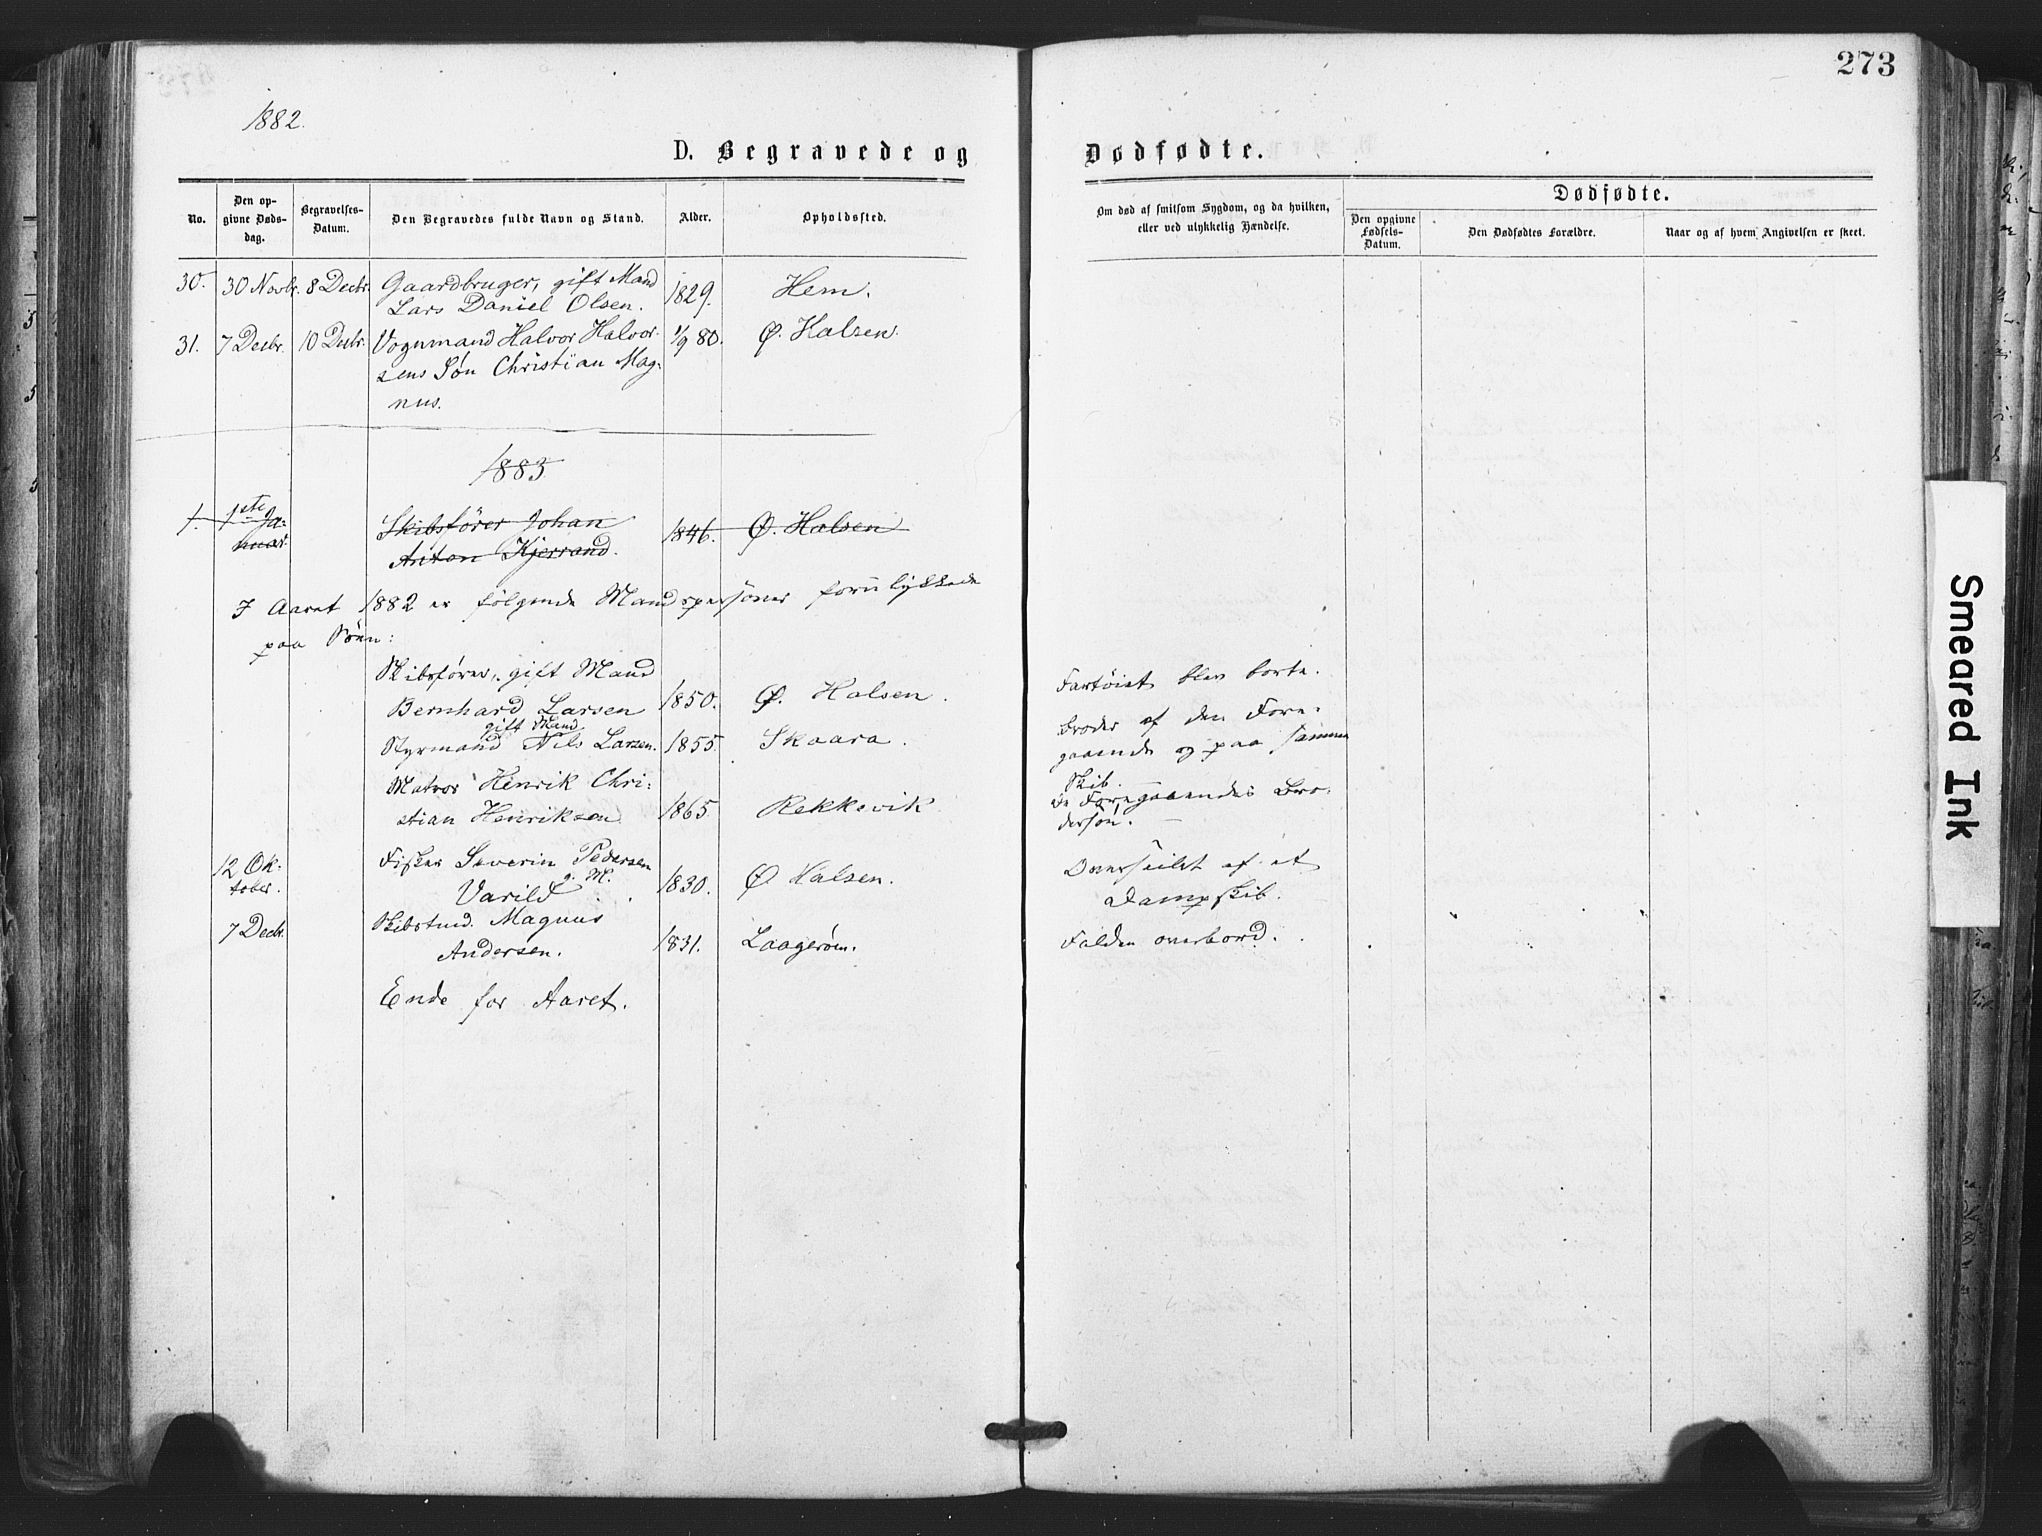 273
1882.
D. Begravede og
Dødfødte.
No.
Den opgivne Dødsdag.
Begravelses-Datum.
Den Begravedes fulde Navn og Stand.
Alder.
Opholdssted.
Om død af smitsom Sygdom, og da hvilken,
eller ved ulykkelig Hændelse.
Dødfødte.
Den opgivne Fødsels-Datum.
Den Dødfødtes Forældre.
Naar og af hvem Angivelsen er skeet.
30. 30 Novbr. 8 Decbr. Gaardbruger, gift Mand 1829. Hem.
Lars Daniel Olsen.
31. 7 Decbr. 10 Decbr. Vognmand Halvor Halvor- 1/9 80. Ø. Halsen.
sens Søn Christian Mag-
nus.
1883
1. 1ste Ja- Skibsfører Johan 1846. Ø. Halsen
nuar. Anton Kjerrand.
I Aaret 1882 er følgende Mandspersoner forulykkede
paa Søen:
Skibsfører, gift Mand Fartøiet blev borte.
Bernhard Larsen 1850. Ø. Halsen.
gift Mand Broder af den Fore-
Styrmand Nils Larsen. 1855. Skaara. gaaende og paa samme
Skib.
Matros Henrik Chri- De Foregaaendes Bro-
stian Henriksen 1865 Rekkevik dersøn.
12 Ok- Fisker Severin Pedersen Overseilet af et
tober. Varild g. M. 1830. Ø Halsen. Dampskib.
7 Decbr. Skibstmd. Magnus
Andersen. 1831. Laagerøen. Falden overbord.
Ende for Aaret.
Smeared Ink